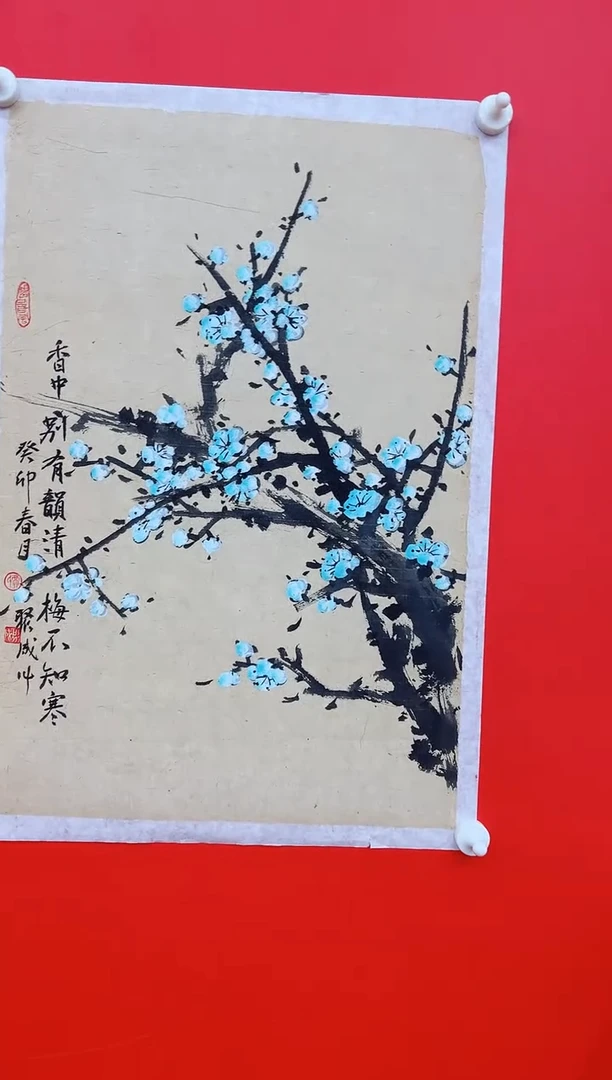 香中别有韻清 梅不知寒
癸卯春月 聚成